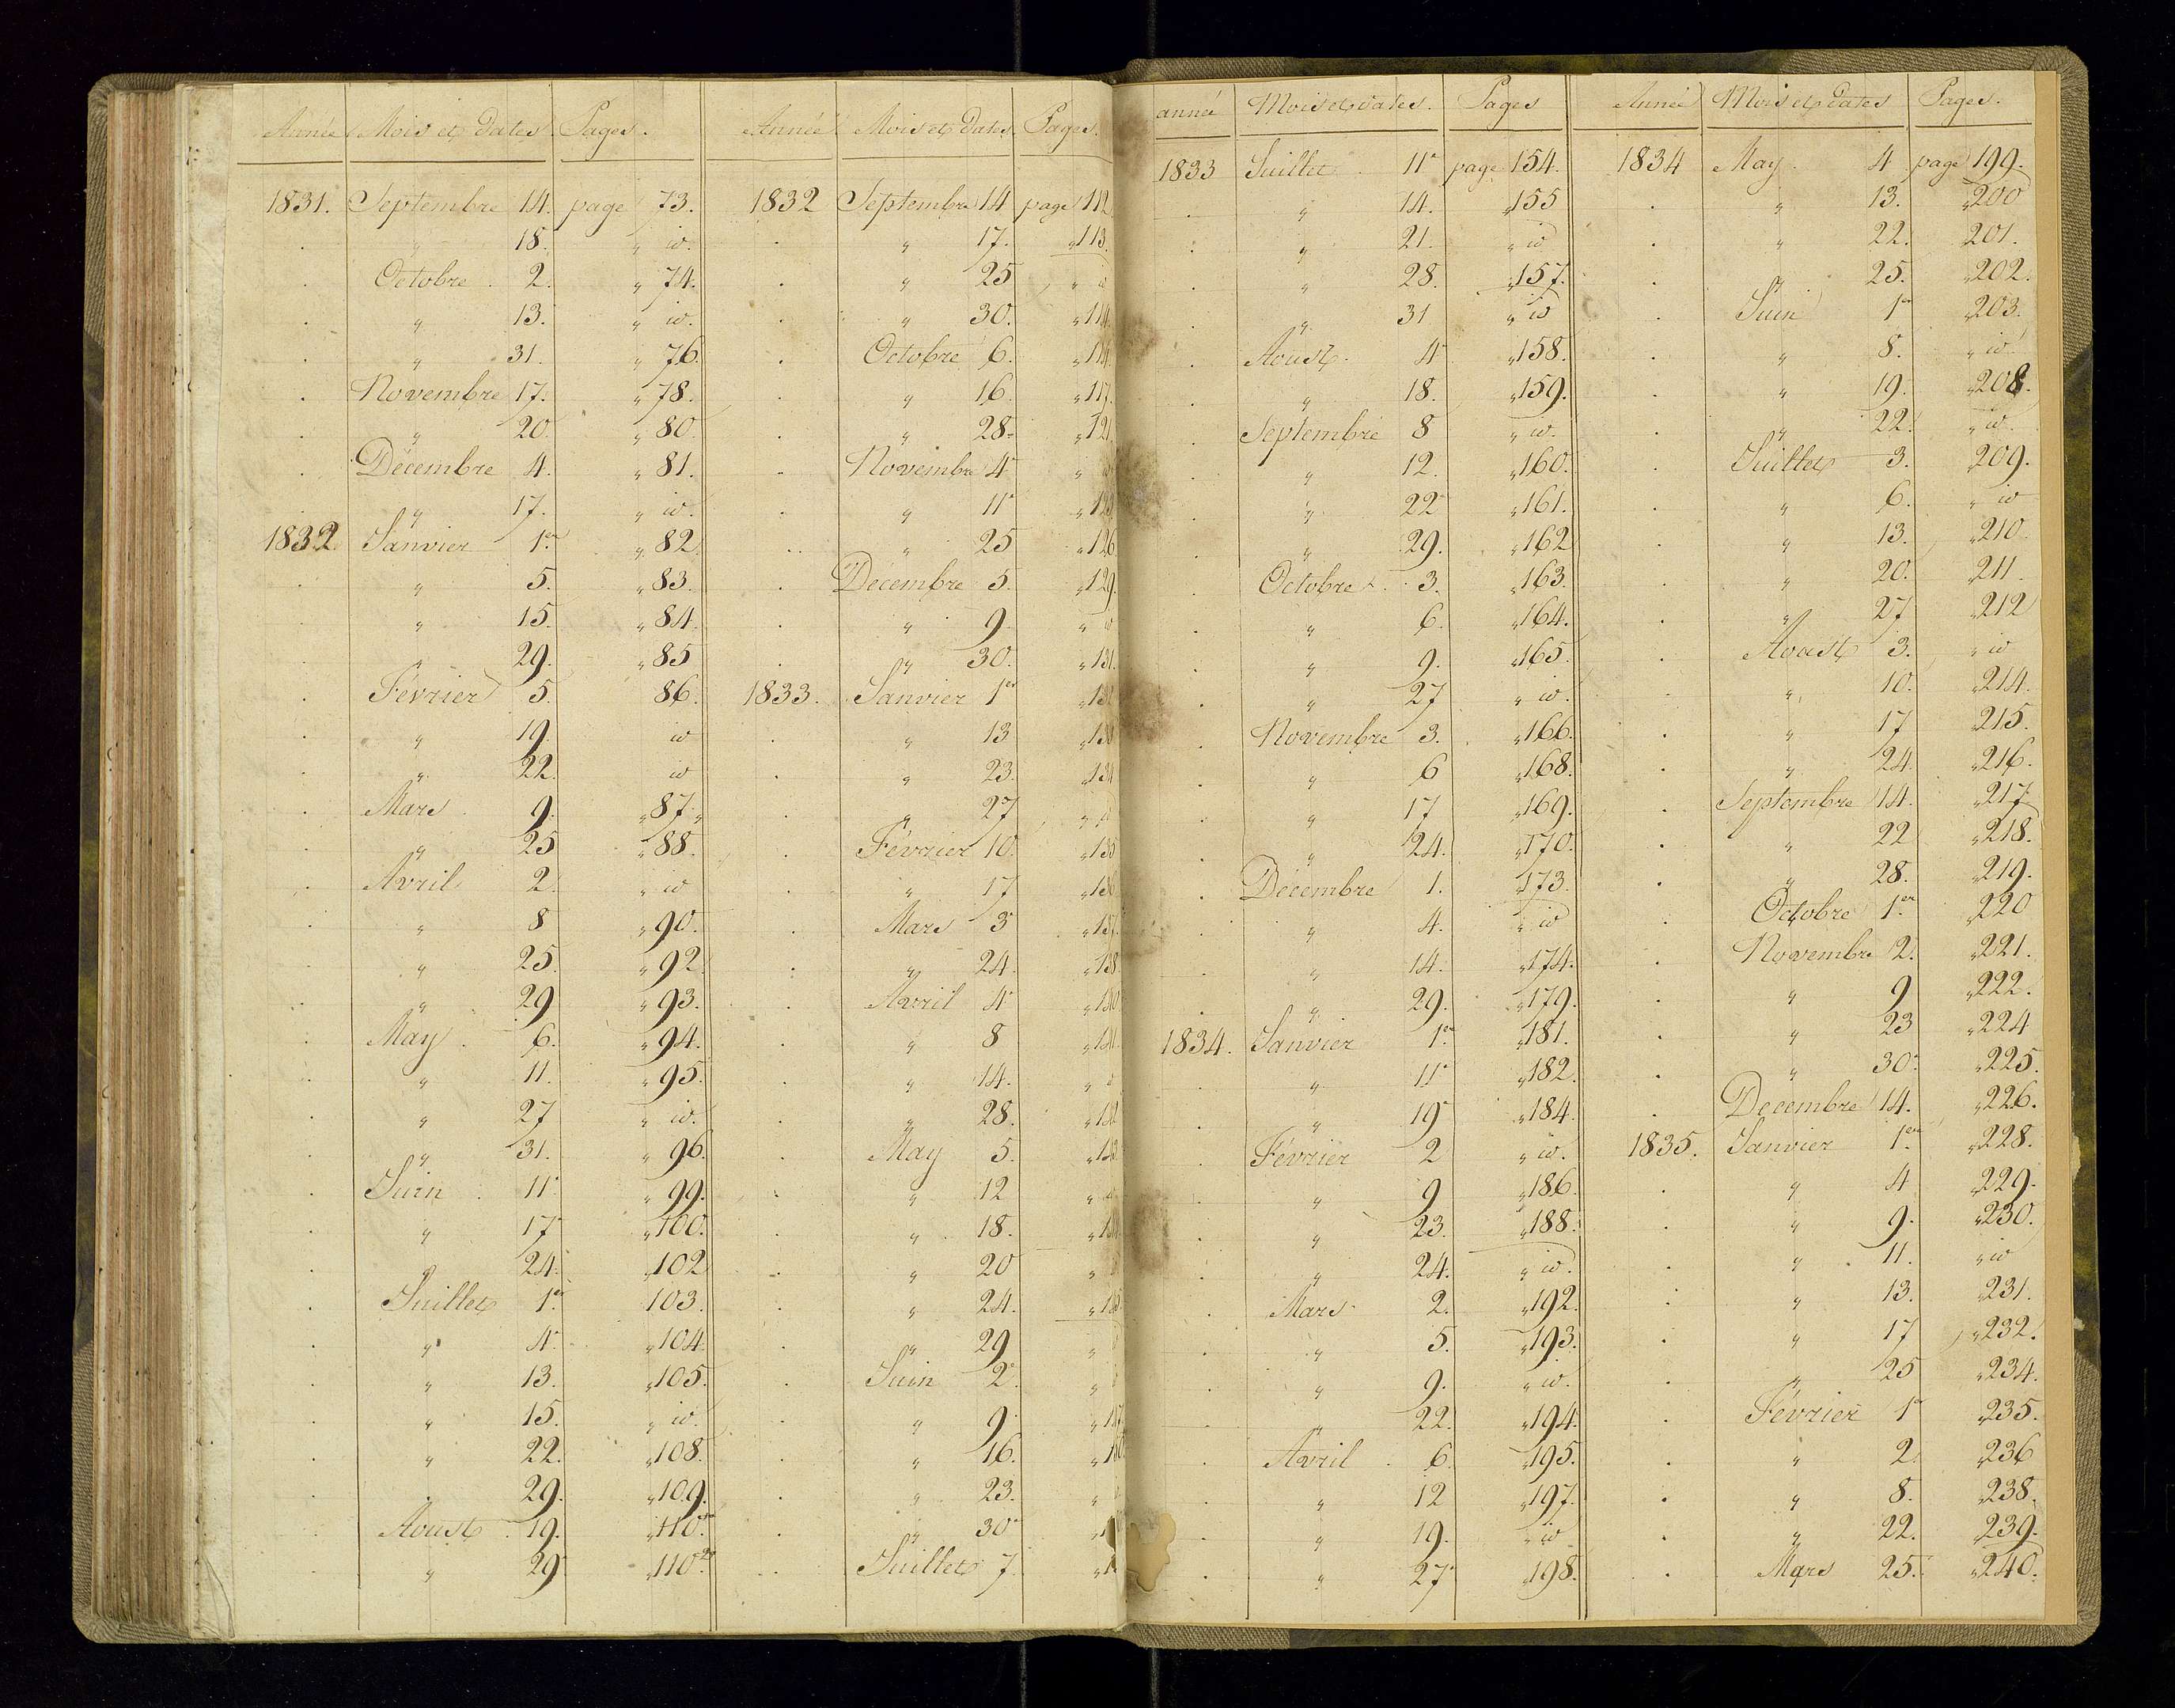 Année Mois et dates Pages.
1831. Septembre 14. page 73.
" 18. " id.
Octobre 2. " 74.
" 13. " id.
" 31. " 76.
Novembre 17. " 78.
" 20. " 80.
Décembre 4. " 81.
" 17. " id.
1832. Janvier 1er " 82.
" 5. " 83.
" 15. " 84.
" 29. " 85
Février 5. 86.
" 19. id
" 22. id
Mars 9. " 87 "
" 25 " 88.
Avril 2. " id
" 8 " 90.
" 25. " 92.
" 29 " 93.
May 6. " 94.
" 11. " 95.
" 27 " id.
" 31. " 96.
Juin 11. " 99.
" 17 " 100.
" 24. " 102
Juillet 1er 103.
" 4. " 104.
" 13. " 105.
" 15. " id.
" 22. " 108.
" 29. " 109.
Aoust 19. " 110.
" 29 " 110.
Année Mois et dates Pages.
1832 Septembre 14 page 112
" 17. " 113.
" 25 "
" 30. " 114.
Octobre 6. " 114.
" 16. " 117.
" 28. " 121.
Novembre 4 "
" 11 "
" 25 " 126
Décembre 5. " 129.
" 9. "
" 30. " 131.
1833. Janvier 1er "
" 13 "
" 23. "
" 27 "
Février 10. " 135
" 17 " 136
Mars 3 " 137.
" 24. " 138.
Avril 4 " 140
" 8 " 141.
" 14. "
" 28. "
May 5. "
" 12 "
" 18. "
" 20 "
" 24. "
" 29 "
Juin 2. "
" 9. "
" 16. "
" 23. "
" 30 "
Juillet 7. "
année Mois et dates. Pages
1833 Juillet 11 page 154.
" 14. " 155
" 21. " id
" 28. " 157.
" 31 " id
Aoust. 4 " 158.
" 18. " 159.
Septembre 8 " id.
" 12. " 160.
" 22 " 161.
" 29. " 162
Octobre 3. " 163.
" 6. " 164.
" 9. " 165.
" 27 " id.
Novembre 3. " 166.
" 6 " 168.
" 17 " 169.
" 24. " 170.
Décembre 1. " 173.
" 4. " id
" 14. " 174.
" 29. " 179.
1834. Janvier 1er " 181.
" 11 " 182.
" 19 " 184.
Février 2 " id.
" 9 " 186.
" 23. " 188.
" 24. " id.
Mars 2. " 192.
" 5. " 193.
" 9. " id.
" 22. " 194.
Avril 6. " 195.
" 12 " 197.
" 19. " id
" 27 " 198.
Année Mois et dates Pages.
1834 May 4 page 199.
" 13. " 200
" 22. 201.
" 25. " 202.
Juin 1er " 203.
" 8. " id.
" 19. " 208.
" 22. " id.
Juillet 3. 209.
" 6. " id
" 13. " 210.
" 20. " 211.
" 27 " 212
Aoust 3. " id
" 10. " 214.
" 17 " 215.
" 24. " 216.
Septembre 14. " 217
" 22 " 218.
" 28. " 219.
Octobre 1er " 220
Novembre 2. " 221.
" 9 " 222.
" 23 " 224
" 30. " 225.
Decembre 14. " 226.
1835. Janvier 1er " 228.
" 4 " 229.
" 9. " 230.
" 11. " id
" 13. " 231.
" 17 " 232.
" 25 " 234.
Février 1er " 235.
" 2. " 236
" 8. " 238.
" 22. " 239.
Mars 25. " 240.